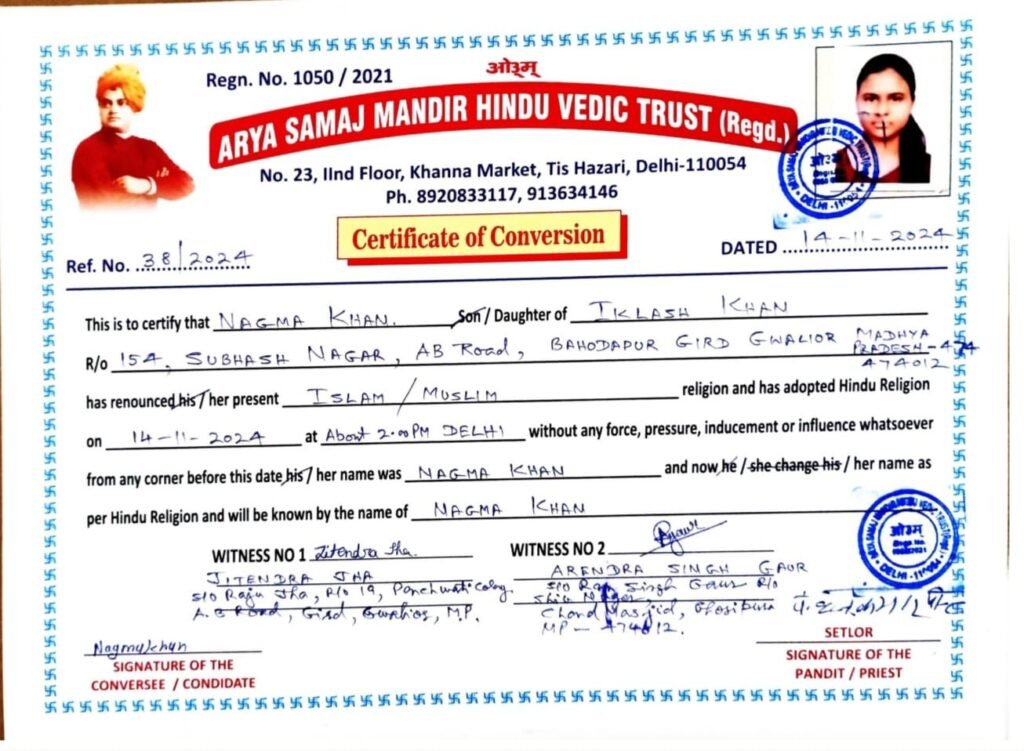 Regn. No. 1050 / 2021
ओ३म्
ARYA SAMAJ MANDIR HINDU VEDIC TRUST (Regd.)
No. 23, IInd Floor, Khanna Market, Tis Hazari, Delhi-110054
Ph. 8920833117, 913634146
Certificate of Conversion
Ref. No. 38/2024
DATED 14-11-2024
This is to certify that NAGMA KHAN. Son / Daughter of IKLASH KHAN
R/o 154, SUBHASH NAGAR, AB Road, BAHODAPUR GIRD GWALIOR MADHYA
PRADESH - 474
474012
has renounced his / her present ISLAM / MUSLIM religion and has adopted Hindu Religion
on 14-11-2024 at About 2.00PM DELHI without any force, pressure, inducement or influence whatsoever
from any corner before this date his / her name was NAGMA KHAN and now he / she change his / her name as
per Hindu Religion and will be known by the name of NAGMA KHAN
WITNESS NO 1 Jitendra Jha.
JITENDRA JHA
S/o Raju Jha, R/o 19, Panchwati Colony.
A.B Road, Gird, Gwalior, M.P.
WITNESS NO 2
ARENDRA SINGH GAUR
S/o Singh Gaur R/o
Shiv Nagar
Chand Masjid, Ghosipura
MP - 474012.
Nagmakhan
SIGNATURE OF THE
CONVERSEE / CANDIDATE
SETLOR
SIGNATURE OF THE
PANDIT / PRIEST
ओ३म्
DELHI-110054
ओ३म्
DELHI-110054